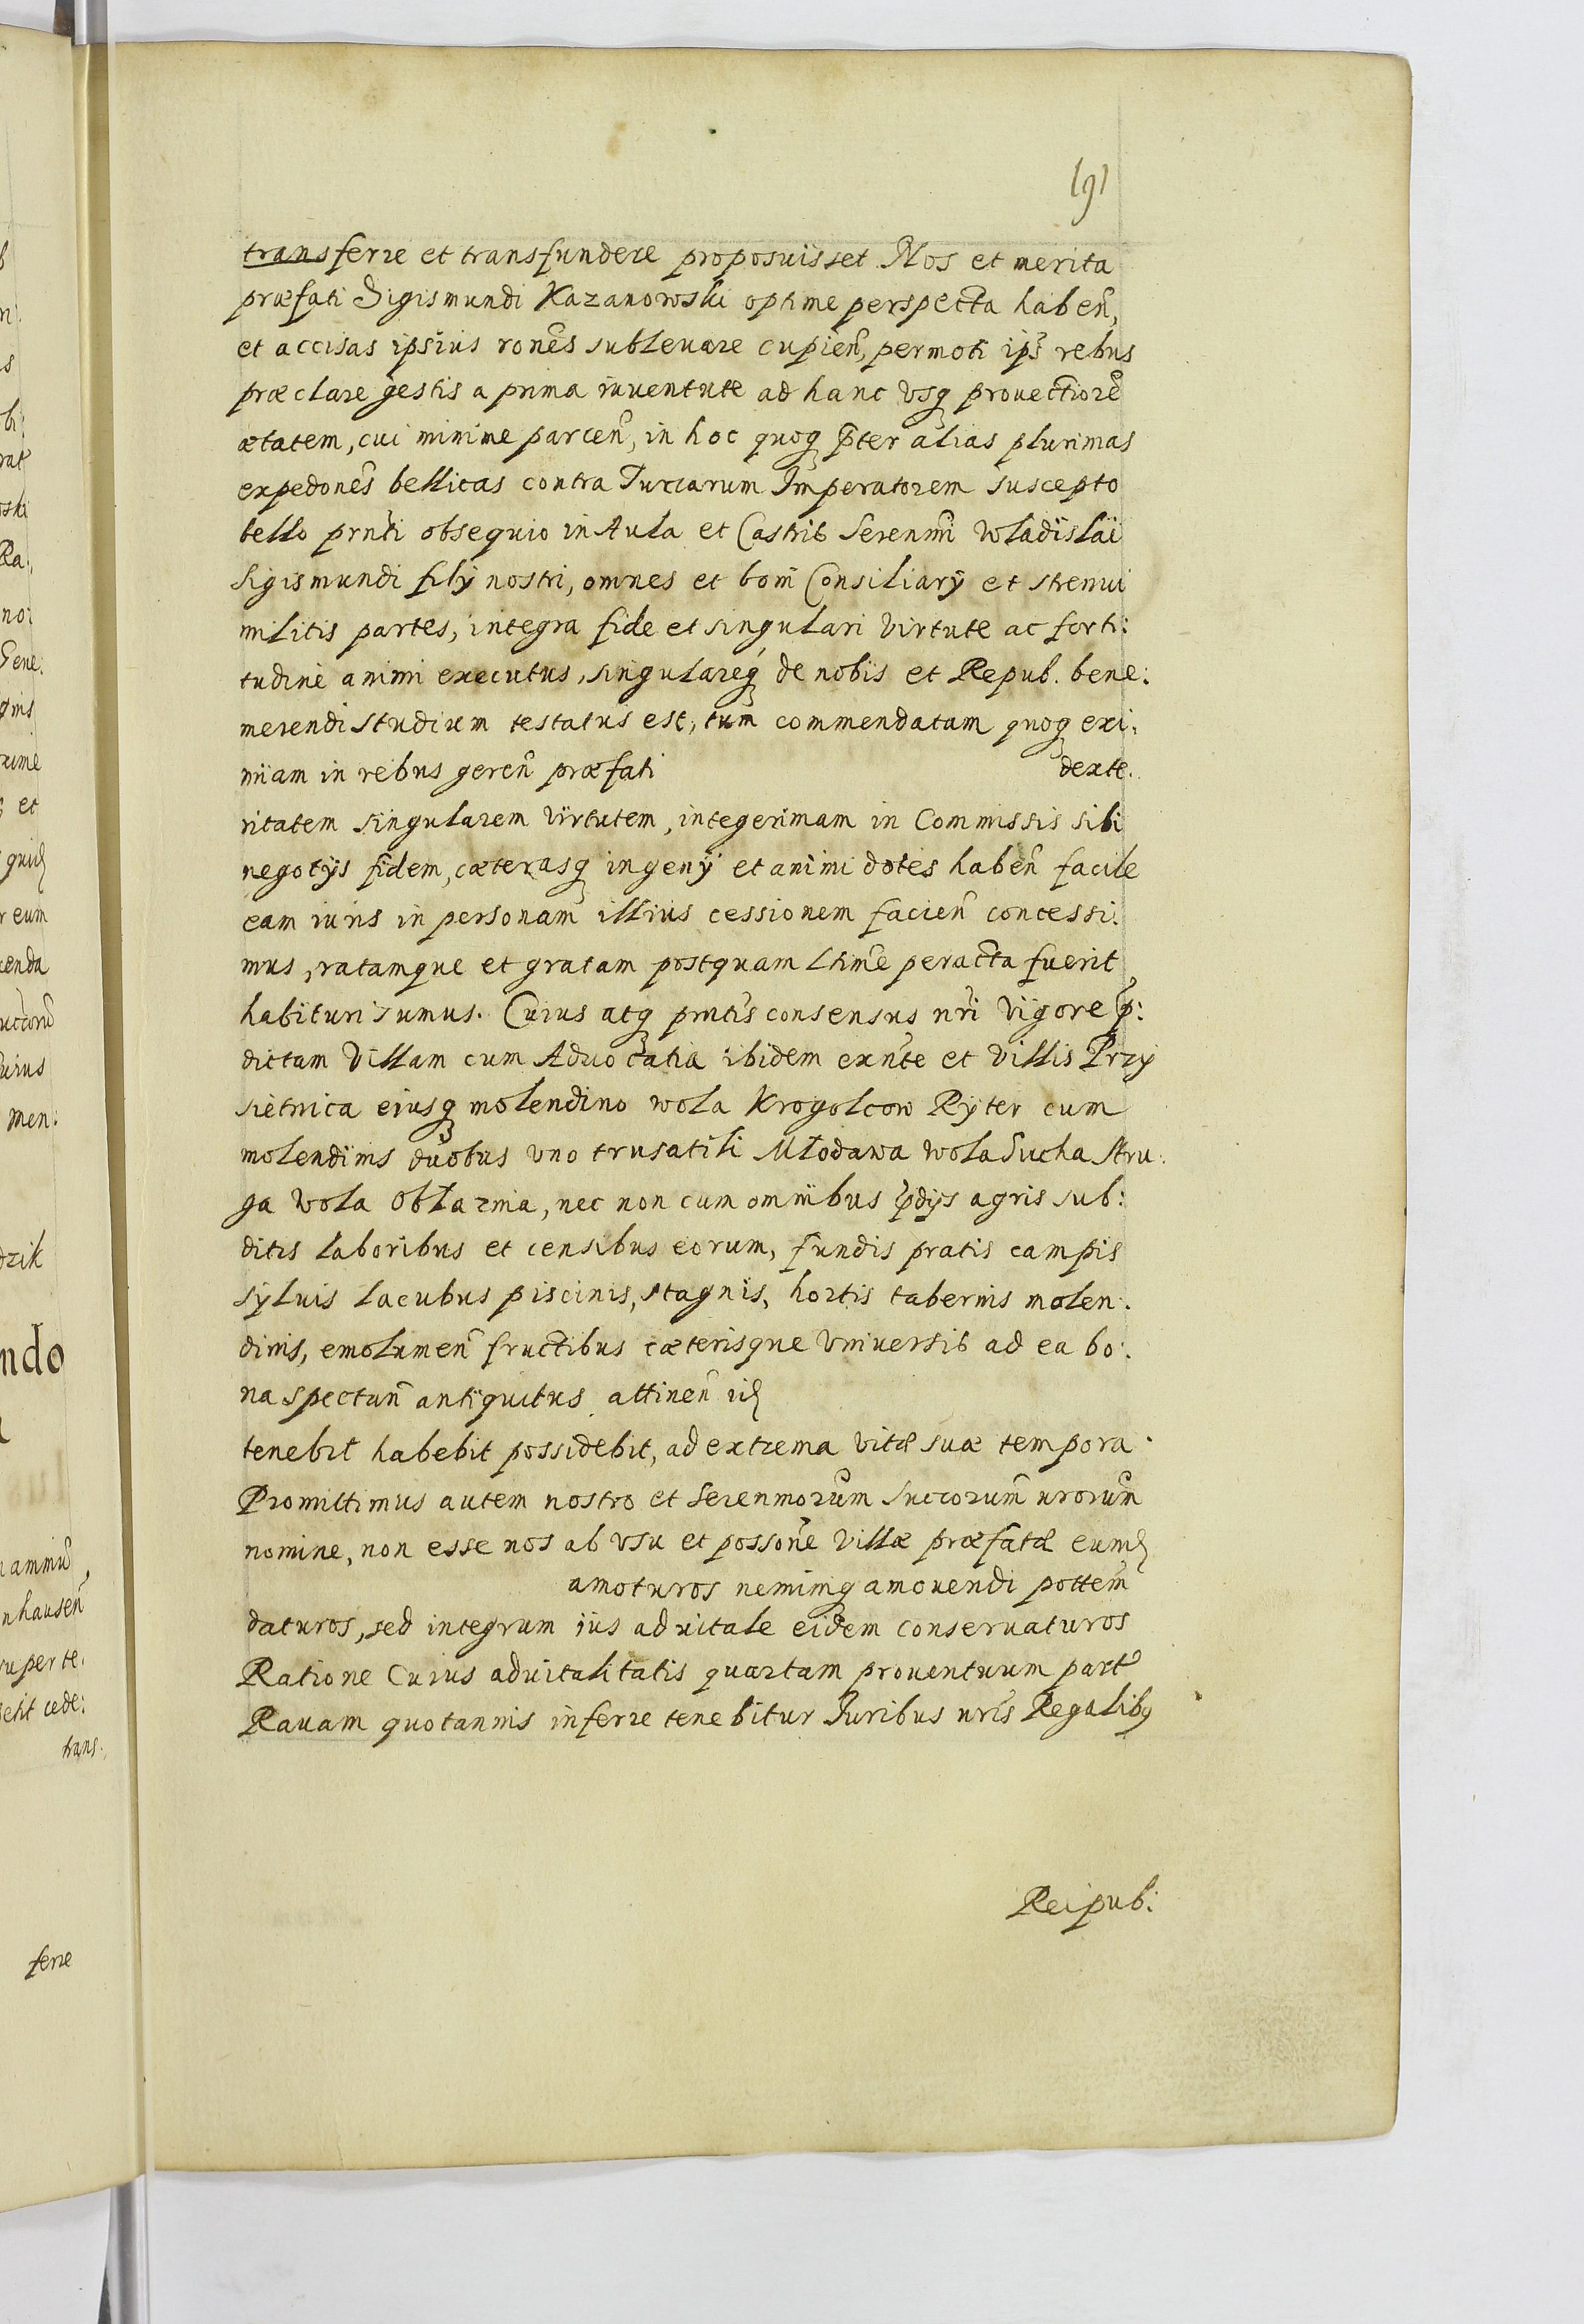 191
transferre et transfundere proposuisset Nos et merita
præfati Sigismundi Kazanowski optime perspecta haben̄,
et accisas ipsius rones̄ subleuare cupien̄, permoti ips̄ rebus
præclare gestis a prima iuuentute ad hanc vsq prouectiorē
ætatem, cui minime parcen̄, in hoc quoq p̄ter alias plurimas
expedones̄ bellicas contra Turcarum Imperatorem suscepto
bello prnti obsequio in Aula et Castris Serenmi Wladislai
Sigismundi filÿ nostri, omnes et boni Consiliarÿ et strenui
militis partes, integra fide et singulari virtute ac forti:
tudine animi executus, singulareq de nobis et Repub. bene:
merendi studium testatus est, tum commendatam quoq exi:
miam in rebus geren̄ præfati dexte.
ritatem singularem virtutem, integerimam in Commissis sibi
negotÿs fidem, cæterasq ingenÿ et animi dotes haben̄ facile
eam iuris in personam illius cessionem facien̄ concessi:
mus, ratamque et gratam postquam ltime peracta fuerit
habituri sumus. Cuius atq prntis consensus nri vigore p̄:
dictam Villam cum Aduocatia ibidem exnte et villis Przy
sietnica eiusq molendino wola Krogolcow Ryter cum
molendinis duobus vno trusatili Młodawa wola Sucha Stru:
ga wola Obłaznia, nec non cum omnibus p̄dÿs agris sub:
ditis laboribus et censibus eorum, fundis pratis campis
syluis lacubus piscinis, stagnis, hortis tabernis molen:
dinis, emolumen̄ fructibus cæterisque vniuersis ad ea bo:
na spectan̄ antiquitus attinen̄
tenebit habebit possidebit, ad extrema vitæ suæ tempora.
Promittimus autem nostro et Serenmorum Succorum nrorum
nomine, non esse nos ab vsu et possone Villæ præfatæ eum
amoturos neminiq amouendi pottem
daturos, sed integrum ius aduitale eidem conseruaturos
Ratione Cuius aduitalitatis quartam prouentuum part
Rauam quotannis inferre tenebitur Juribus nris Regalibq
Reipub: